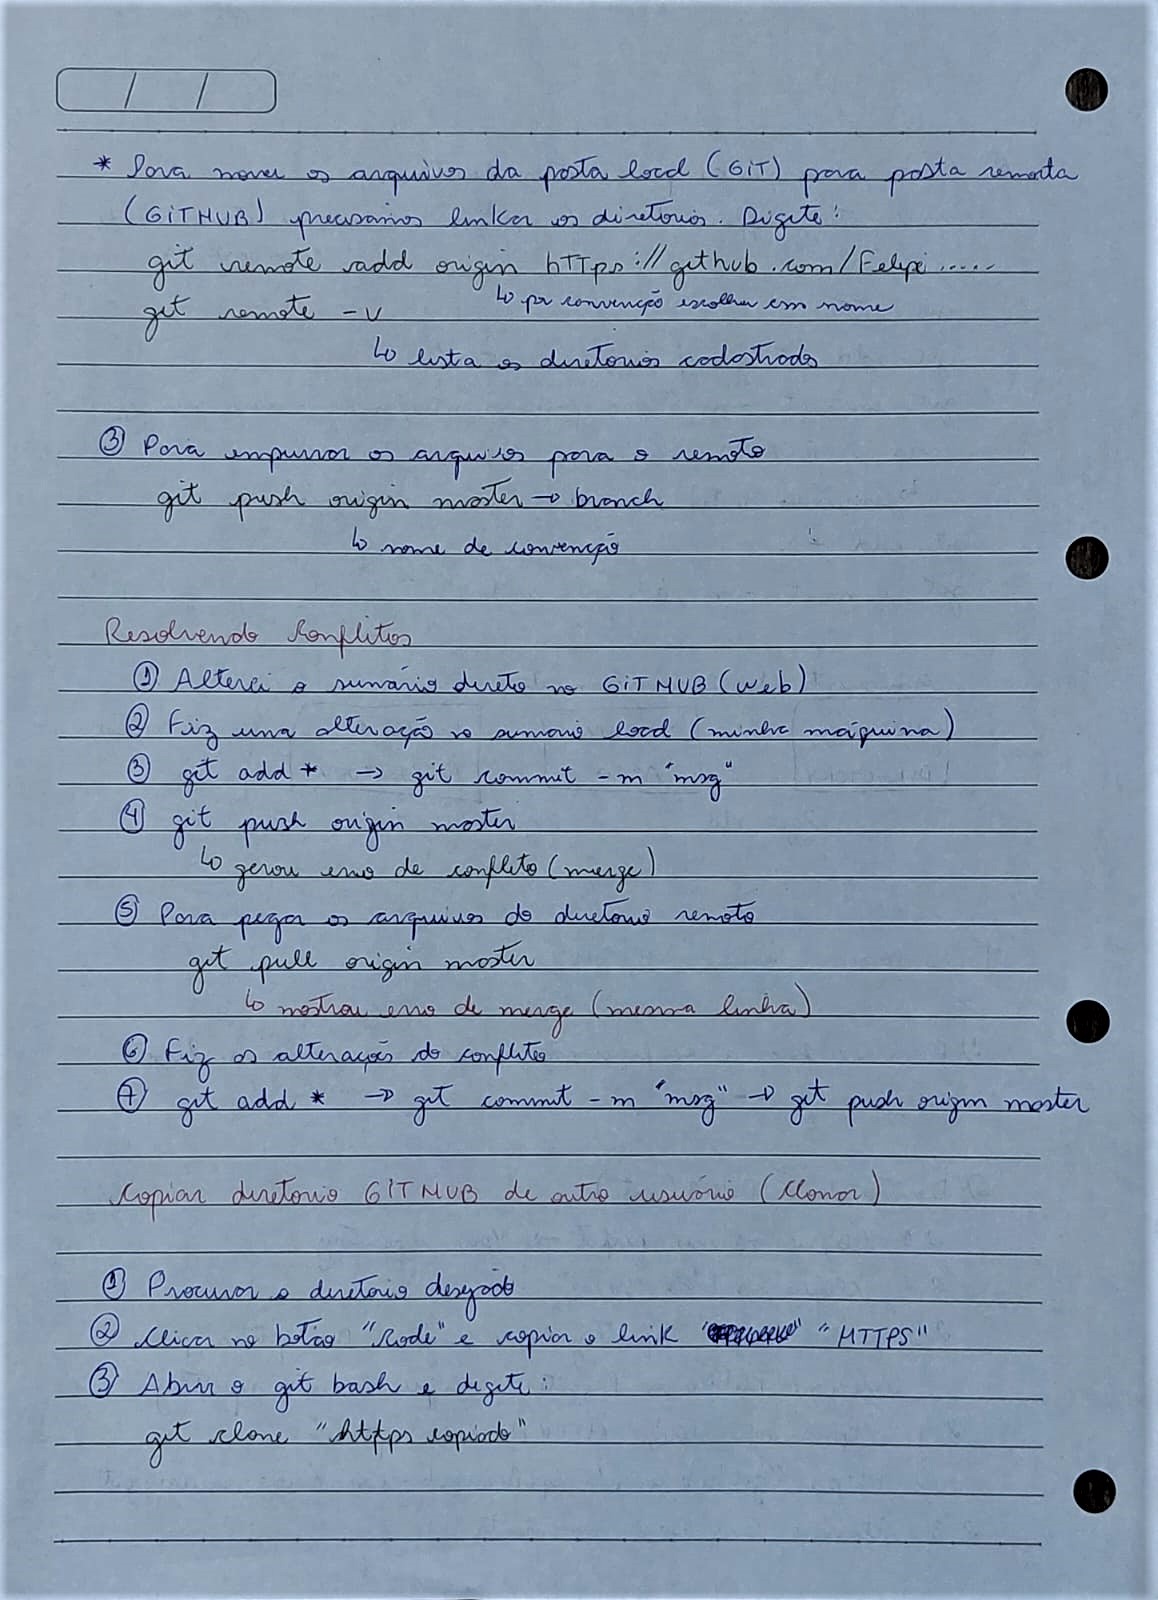 * Para mover os arquivos da pasta local (GIT) para pasta remota
(GITHUB) precisamos linkar os diretórios. Digite:
git remote add origin https://github.com/Felipe.....
↳ por convenção escolher esse nome
git remote -v
↳ lista os diretórios cadastrados
③ Para empurrar os arquivos para o remoto
git push origin master → branch
↳ nome de convenção
Resolvendo Conflitos
① Alterei o sumário direto no GITHUB (web)
② Fiz uma alteração no sumario local (minha máquina)
③ git add * → git commit -m "msg"
④ git push origin master
↳ gerou erro de conflito (merge)
⑤ Para pegar os arquivos do diretório remoto
git pull origin master
↳ mostrou erro de merge (mesma linha)
⑥ Fiz as alterações do conflito
⑦ git add * → git commit -m "msg" → git push origin master
Copiar diretorio GITHUB de outro usuário (Clonar)
① Procurar o diretorio desejado
② Clicar no botão "Code" e copiar o link "HTTPS"
③ Abrir o git bash e digite:
git clone "https copiado"